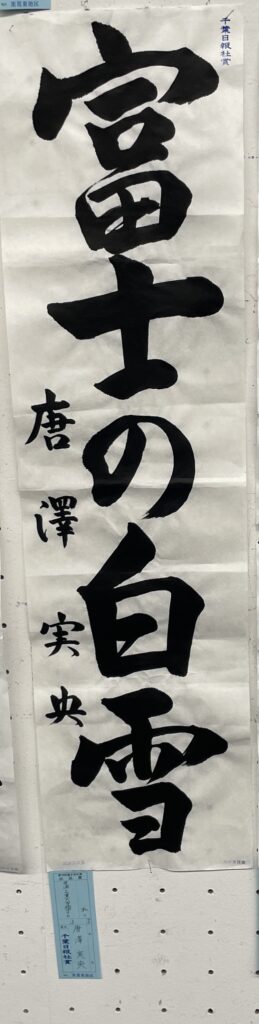 千葉日報社賞
富士の白雪
唐澤実央
唐澤実央
千葉日報社賞